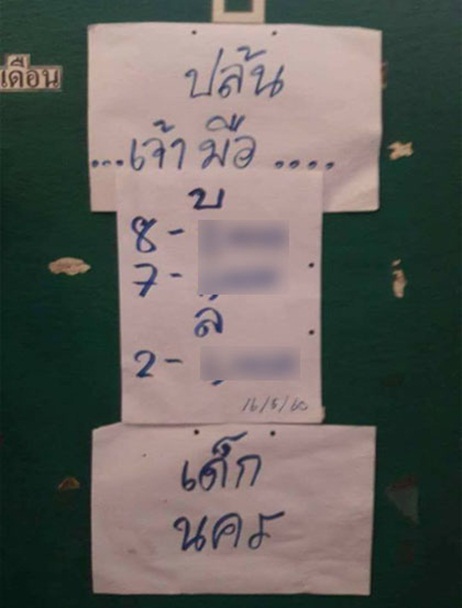 เดือน
ปล้น
...เจ้ามือ....
บ
8-
7-
ล้
2-
16/5/60
เด็ก
นคร